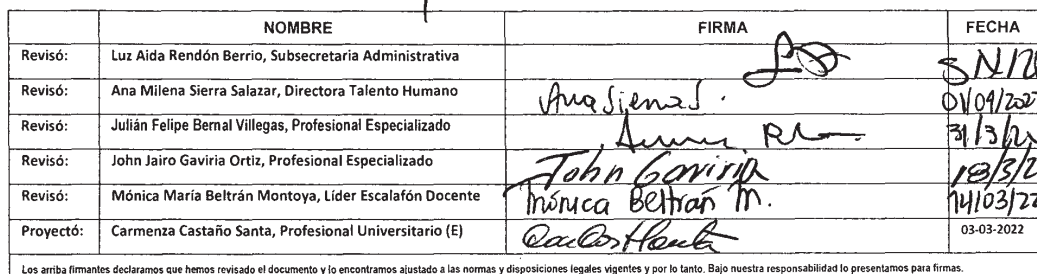 NOMBRE FIRMA FECHA
Revisó: Luz Aida Rendón Berrio, Subsecretaria Administrativa
Revisó: Ana Milena Sierra Salazar, Directora Talento Humano Ana Sierra S. 01/04/202
Revisó: Julián Felipe Bernal Villegas, Profesional Especializado 31/3/2
Revisó: John Jairo Gaviria Ortiz, Profesional Especializado John Gaviria 18/3/2
Revisó: Mónica María Beltrán Montoya, Líder Escalafón Docente Mónica Beltrán M. 14/03/22
Proyectó: Carmenza Castaño Santa, Profesional Universitario (E) 03-03-2022
Los arriba firmantes declaramos que hemos revisado el documento y lo encontramos ajustado a las normas y disposiciones legales vigentes y por lo tanto. Bajo nuestra responsabilidad lo presentamos para firmas.